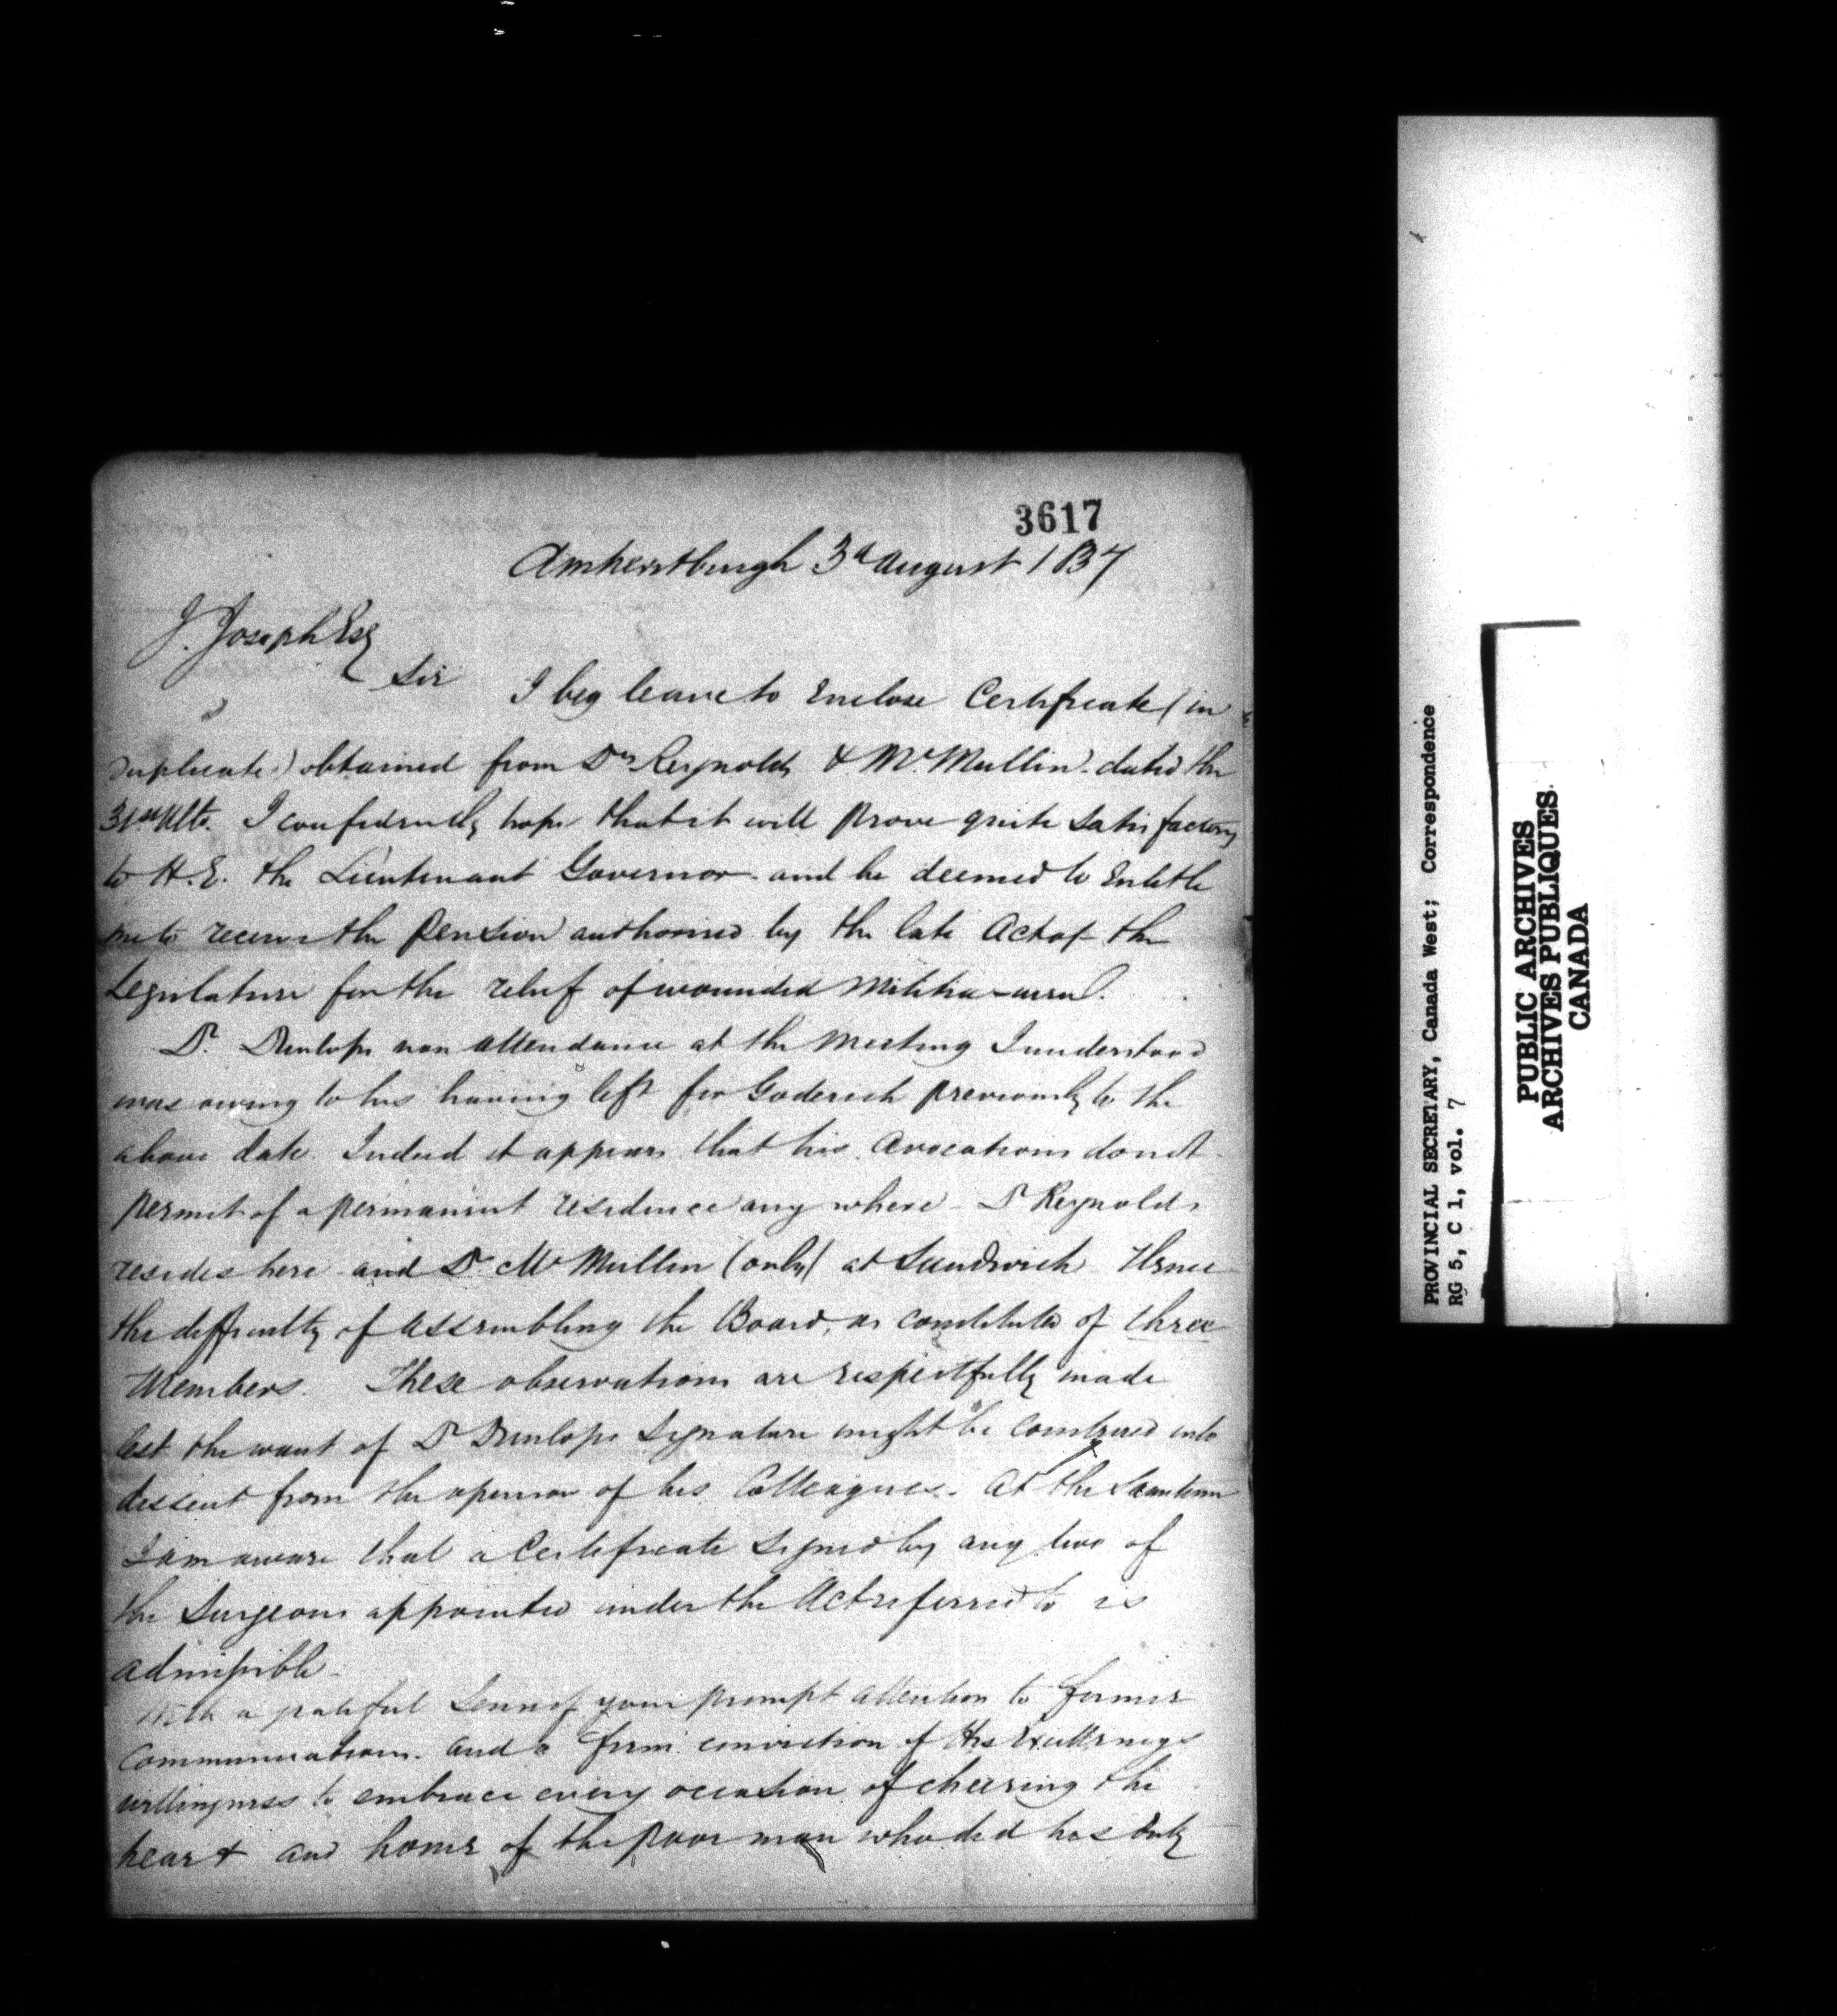 3617
Amherstburgh 3d August 1837
J. Joseph Esq
Sir I beg leave to Enclose Certificate (in
duplicate) obtained from Drs Reynolds & McMullin dated the
31st Ulto. I confidently hope that it will prove quite satisfactory
to H.E. the Lieutenant Governor and be deemed to Entitle
me to receive the Pension authorised by the late Act of the
Legislature for the relief of wounded Militia-men.
Dr. Dunlops non attendance at the Meeting I understood
was owing to his having left for Goderich previously to the
above date. Indeed it appears that his avocations do not
permit of a permanent residence any where - Dr Reynolds
resides here and Dr. McMullin (only) at Sandwich Hence
the difficulty of assembling the Board, as constituted of three
Members. These observations are respectfully made
lest the want of Dr Dunlops Signature might be construed into
dissent from the opinion of his Colleagues. At the Same time
I am aware that a Certificate Signed by any two of
the Surgeons appointed under the Act referred to is
admissible.
With a grateful Sense of your prompt attention to former
Communications. and a firm conviction of His Excellencys
willingness to embrace every occasion of cheering the
heart and home of the poor man who did his duty
PROVINCIAL SECRETARY, Canada West; Correspondence
RG 5, C 1, vol. 7
PUBLIC ARCHIVES
ARCHIVES PUBLIQUES
CANADA